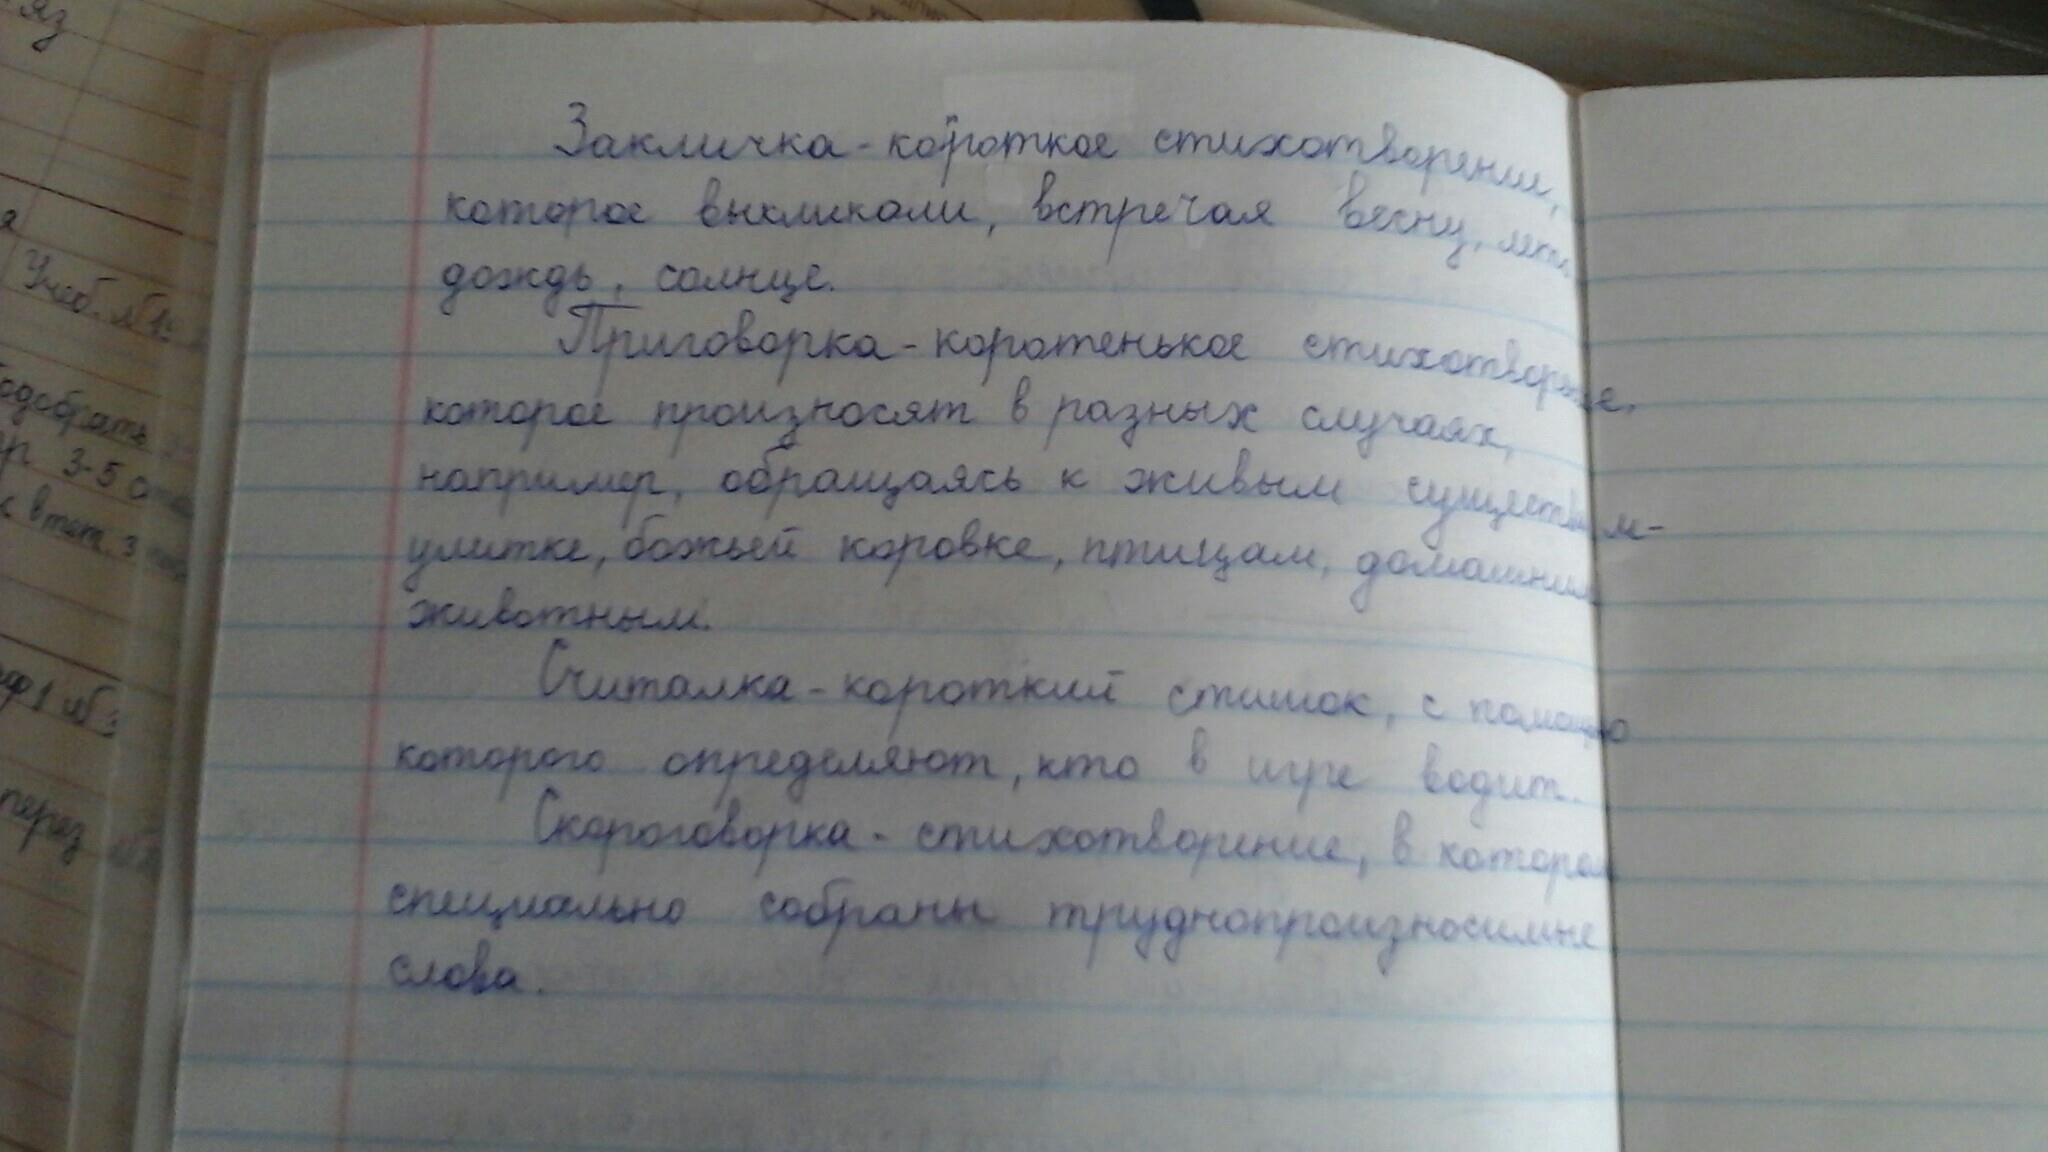 яз
я
Учеб. №1:
подобрать
3-5
в тет. 3
№3
Закличка - короткое стихотворение,
которое выкликали, встречая весну, лето,
дождь, солнце.
Приговорка - коротенькое стихотворение,
которое произносят в разных случаях,
например, обращаясь к живым существам -
улитке, божьей коровке, птицам, домашним
животным.
Считалка - короткий стишок, с помощью
которого определяют, кто в игре водит.
Скороговорка - стихотворение, в котором
специально собраны труднопроизносимые
слова.